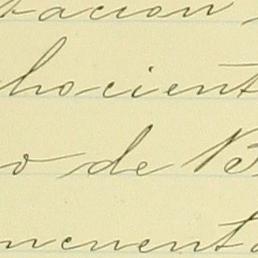 tacion
hocient
o de B
ncuenta